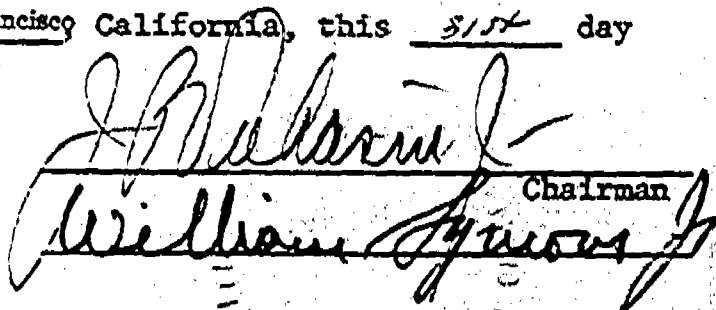 ncisco California, this 31st day
Chairman
William Symons Jr